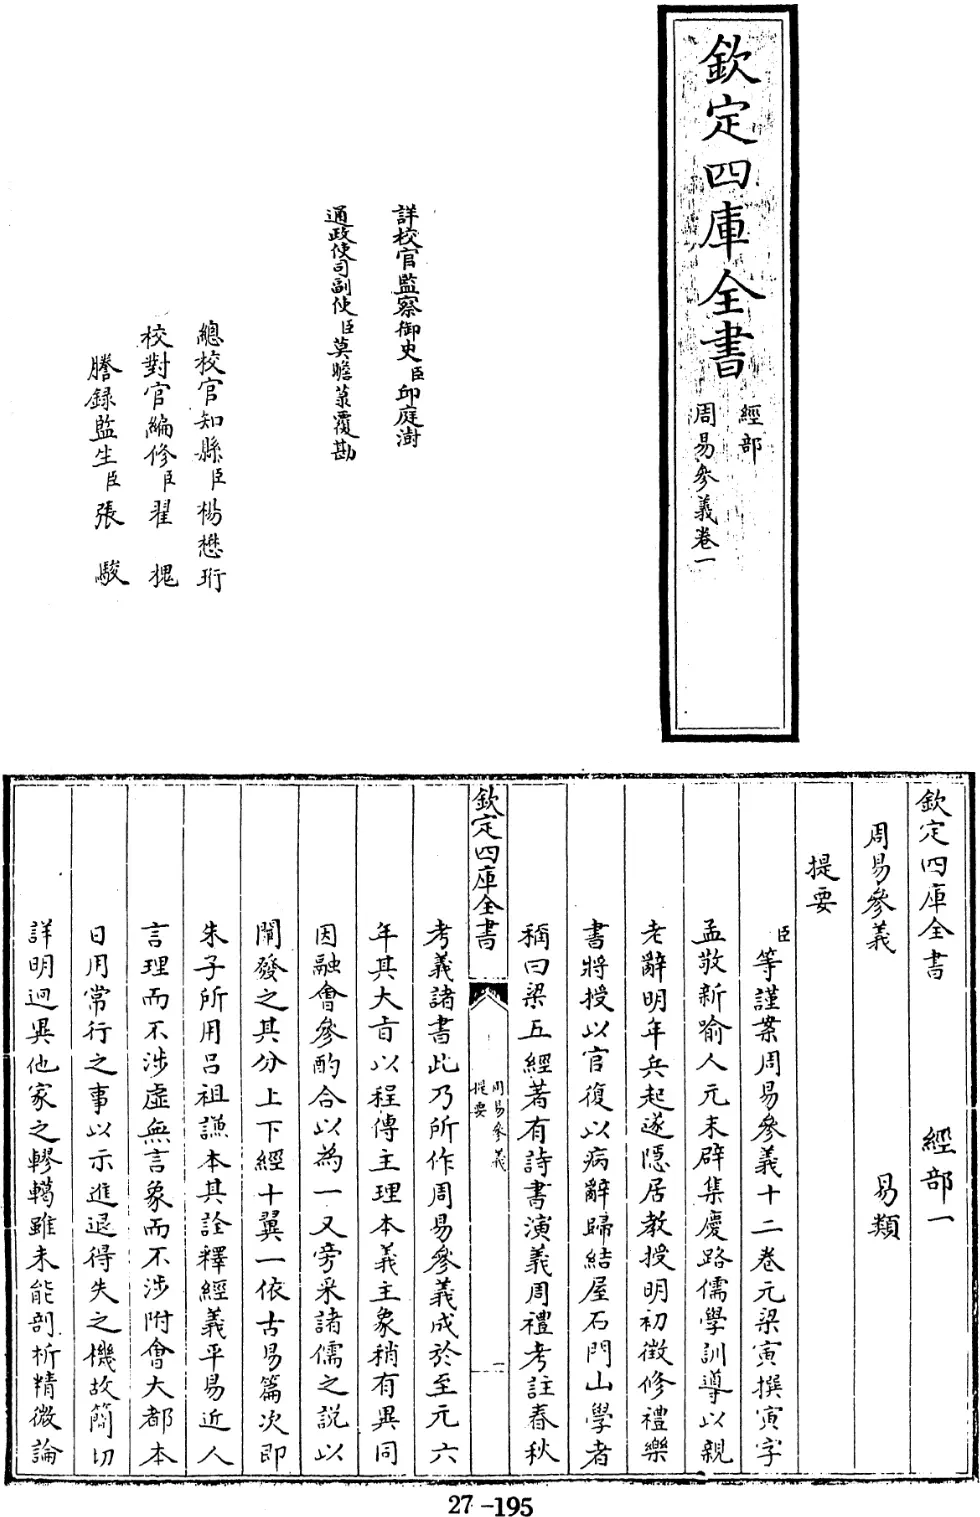 欽定四庫全書
經部
周易參義卷一
詳校官監察御史臣邱庭澍
通政使司副使臣莫瞻菉覆勘
總校官知縣臣楊懋珩
校對官編修臣翟槐
謄錄監生臣張駿
欽定四庫全書 經部一
周易參義 易類
提要
臣等謹案周易參義十二卷元梁寅撰寅字
孟敬新喻人元末辟集慶路儒學訓導以親
老辭明年兵起遂隱居教授明初徵修禮樂
書將授以官復以病辭歸結屋石門山學者
稱曰梁五經著有詩書演義周禮考註春秋
欽定四庫全書
周易參義
提要
一
考義諸書此乃所作周易參義成於至元六
年其大旨以程傳主理本義主象稍有異同
因融會參酌合以為一又旁采諸儒之說以
闡發之其分上下經十翼一依古易篇次即
朱子所用呂祖謙本其詮釋經義平易近人
言理而不涉虛無言象而不涉附會大都本
日用常行之事以示進退得失之機故簡切
詳明迥異他家之轇轕雖未能剖析精微論
27-195